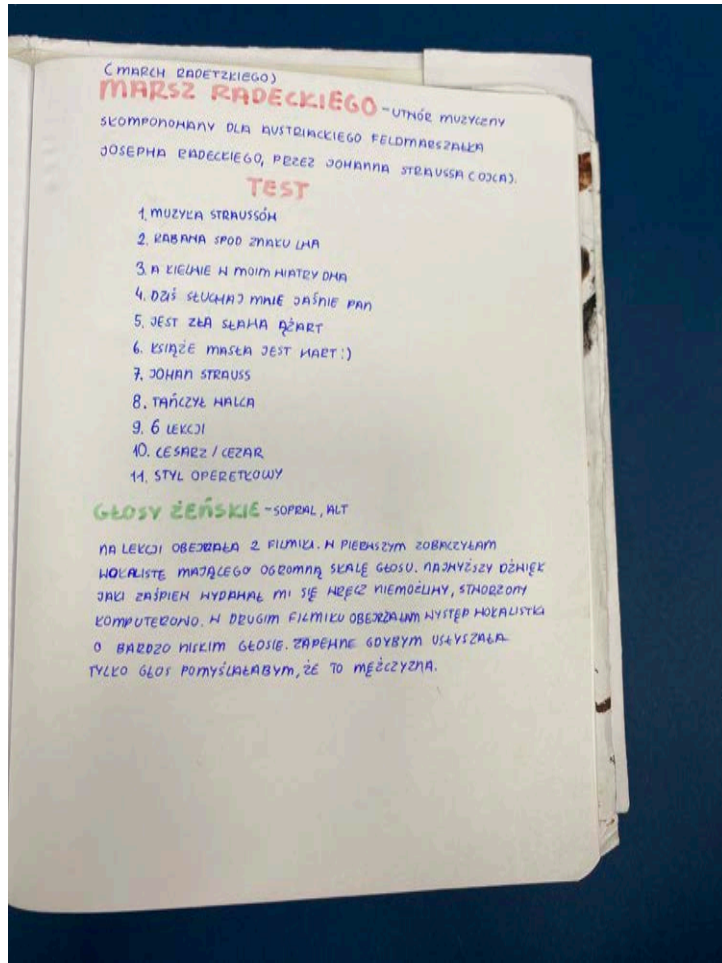 (MARCH RADETZKIEGO)
MARSZ RADECKIEGO - UTWÓR MUZYCZNY
SKOMPONOWANY DLA AUSTRIACKIEGO FELDMARSZAŁKA
JOSEPHA RADECKIEGO, PRZEZ JOHANNA STRAUSSA (OJCA).
TEST
1. MUZYKA STRAUSSÓW
2. KABAŁA SPOD ZNAKU LWA
3. A KIELNIE W MOIM WIATRY DWA
4. DZIŚ SŁUCHAJ MNIE JAŚNIE PAN
5. JEST ZŁA SŁAWA ĄŻART
6. KSIĄŻE MASŁA JEST WART :)
7. JOHAN STRAUSS
8. TAŃCZYŁ WALCA
9. 6 LEKCJI
10. CESARZ / CEZAR
11. STYL OPERETKOWY
GŁOSY ŻEŃSKIE - SOPRAL, ALT
NA LEKCJI OBEJRAŁA 2 FILMIKI. W PIERWSZYM ZOBACZYŁAM
WOKALISTE MAJĄCEGO OGROMNĄ SKALĘ GŁOSU. NAJWYŻSZY DŹWIĘK
JAKI ZAŚPIEW WYDAWAŁ MI SIĘ WRĘCZ NIEMOŻLIWY, STWORZONY
KOMPUTEROWO. W DRUGIM FILMIKU OBEJRZAŁAM WYSTĘP WOKALISTKI
O BARDZO NISKIM GŁOSIE. ZAPEWNE GDYBYM USŁYSZAŁA
TYLKO GŁOS POMYŚLAŁABYM, ŻE TO MĘŻCZYZNA.